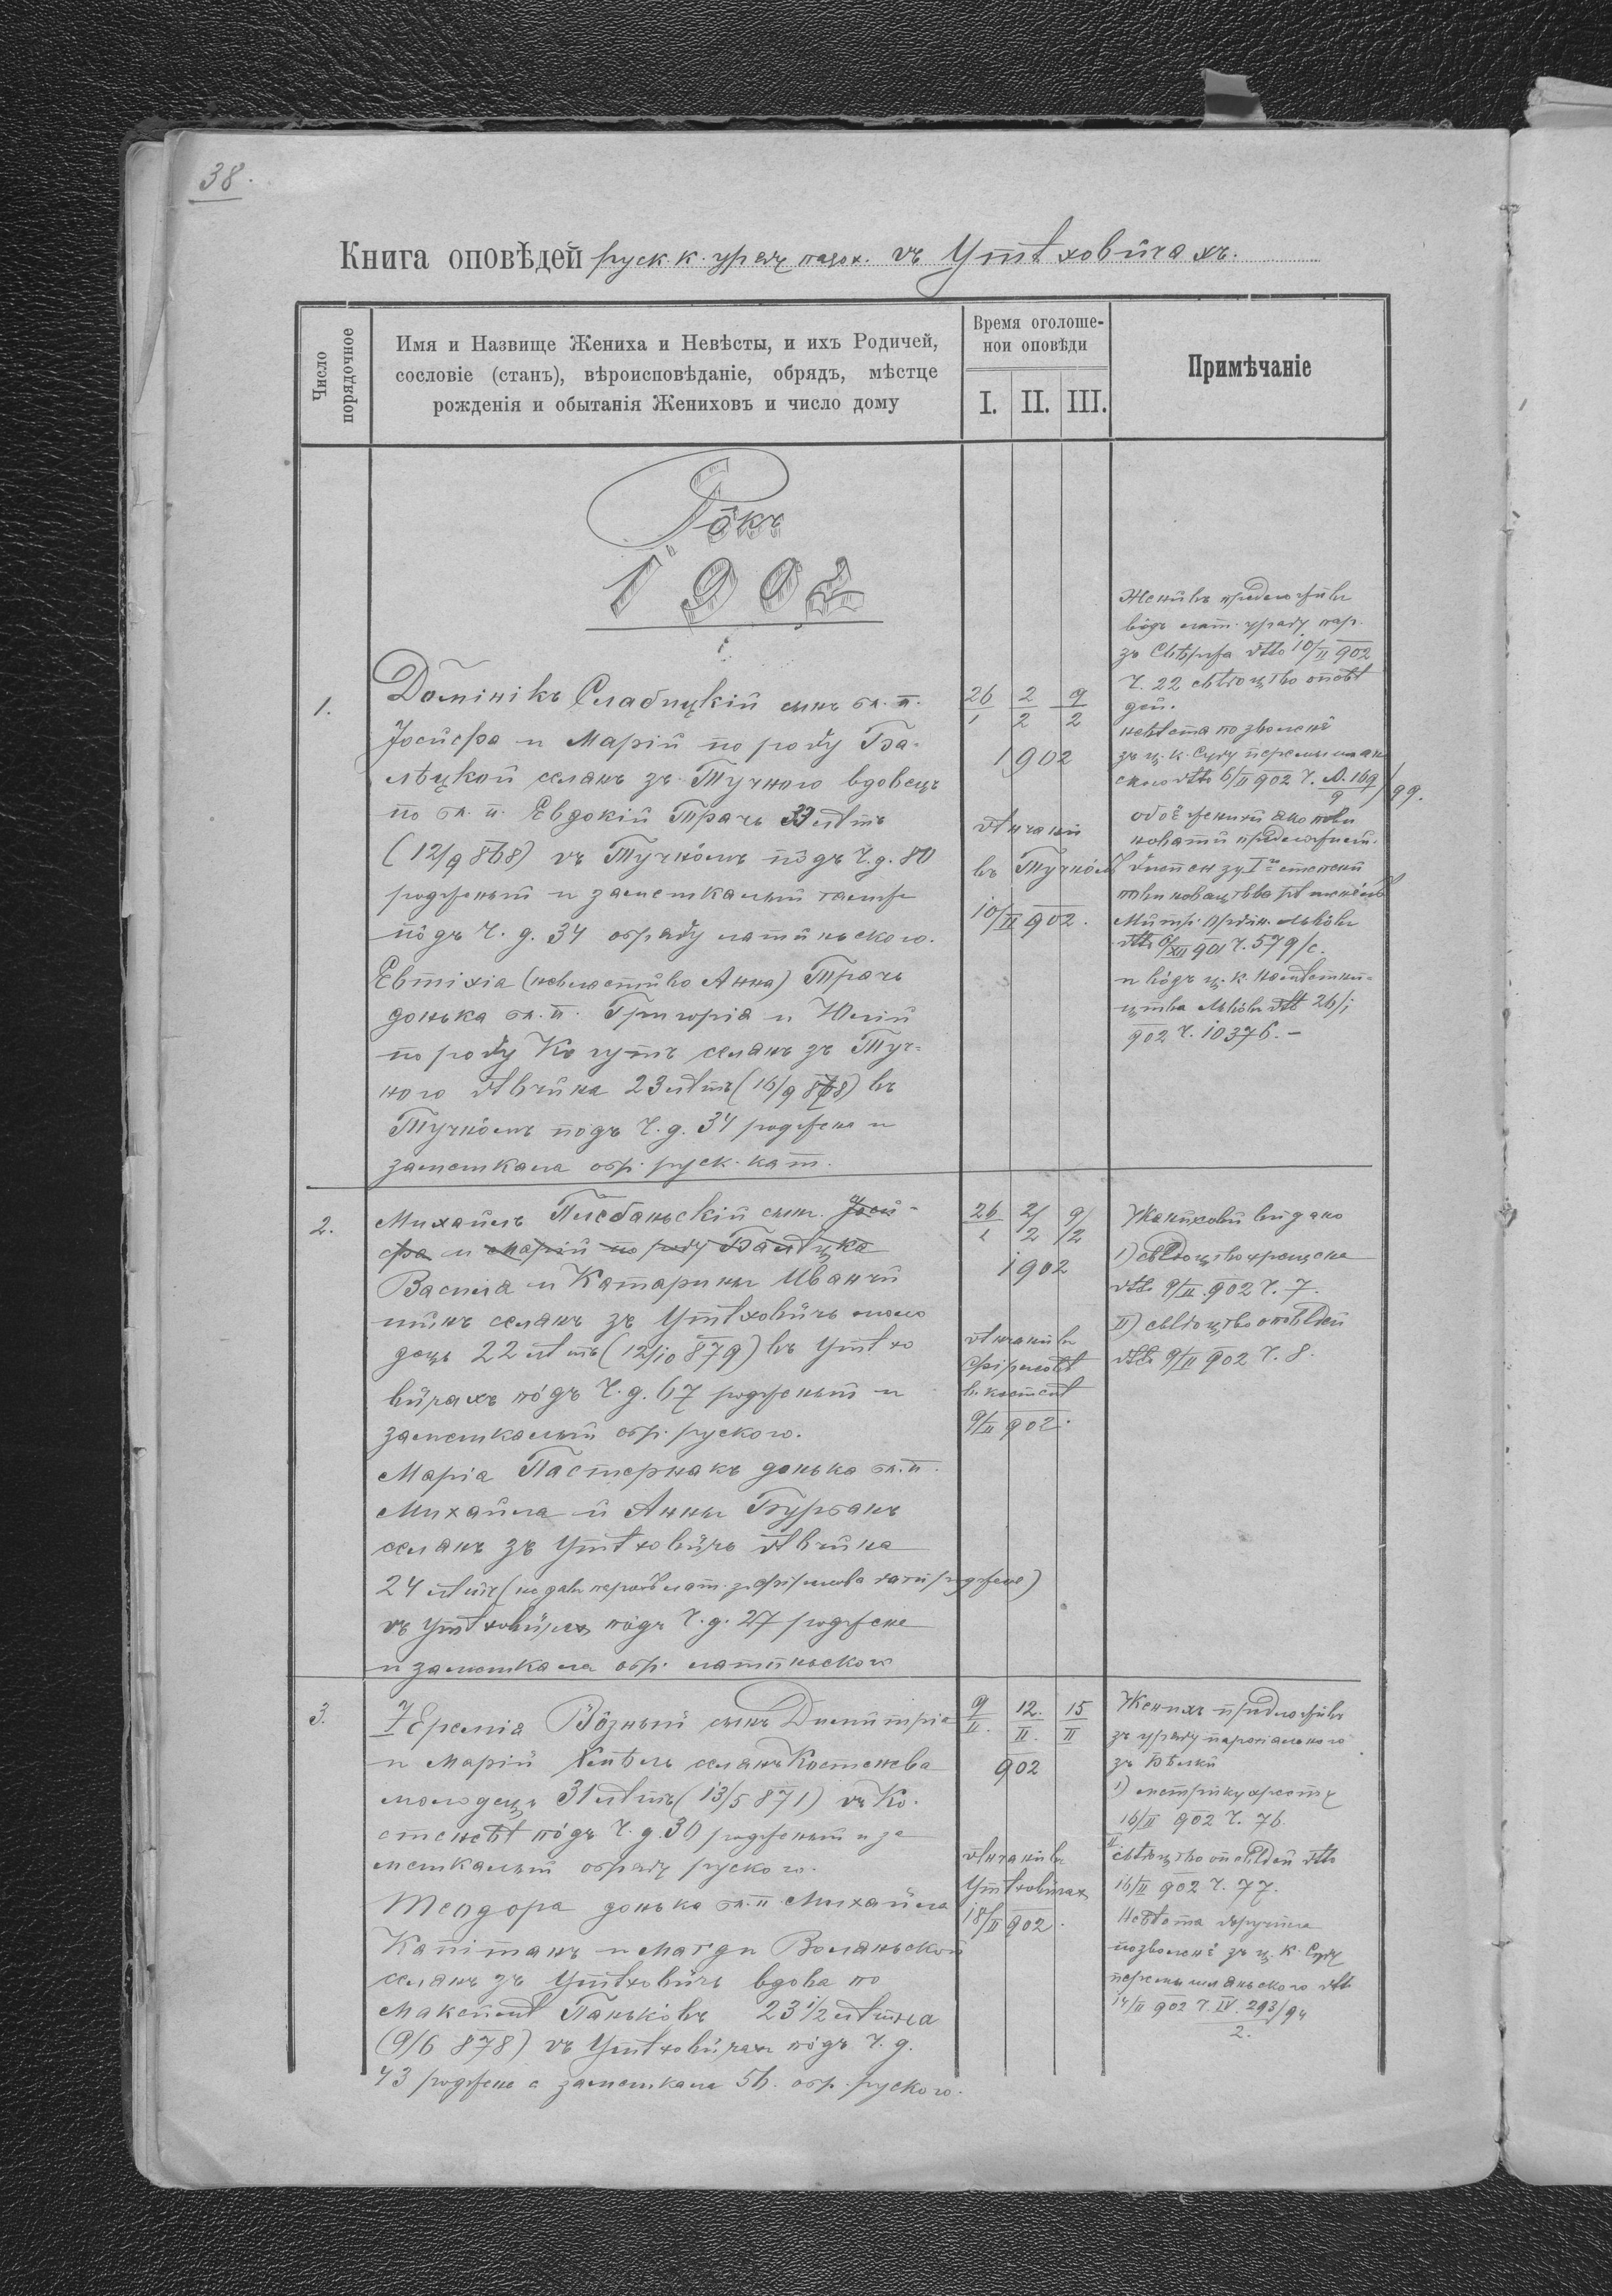 38.
Книга оповѣдей руск к. уряду парох. въ Утѣховичахъ.
Число порядочное
Имя и Назвище Жениха и Невѣсты, и ихъ Родичей,
сословіе (станъ), вѣроисповѣданіе, обрядъ, мѣстце
рожденія и обытанія Жениховъ и число дому
Время оголоше-
нои оповѣди
I. II. III.
Примѣчаніе
Рôкъ
1902
1.
Домінікъ Слабицкій сынъ бл. п.
Іосифа и Маріи по роду Ба-
лѣцкой селянъ зъ Тучного вдовець
по бл. п. Евдокіи Трачъ 33 лѣтъ
(12/9 868) въ Тучнôмъ пôдъ Ч. д. 80
родженый и замешкалый тамже
пôдъ Ч. д. 34 обряду латиньского.
Евтіхіа (невластиво Анна) Трачъ
донька бл. п. Григорія и Юлии
по роду Когутъ селянъ зъ Туч-
ного дѣвчина 23 лѣтъ (16/9 878) въ
Тучнôмъ пôдъ Ч. д. 34 роджена и
замешкала обр. руск. кат.
26/1 2/2 9/2
1902
вѣнчаній
въ Тучнôмъ
10/II 902.
Женихъ предложивъ
вôдъ лат. уряду пар.
зъ Свѣржа дто 10/II 902
Ч. 22 свѣдоцтво оповѣ
дей.
невѣста позволенє
зъ ц. к. Суду перемышлян
ского дто 6/II 902 Ч. А. 169/9 / 99.
обоє женихи яко пови
новати предложили
диспензу I го степени
повиновацтва
Митр. Ордин. Львôвъ
дто 6/XII 901 Ч. 579/с.
и вôдъ ц. к. Намѣстни-
цтва Львôвъ дто 26/I
902 Ч. 10376. –
2.
Михаилъ Плєбаньскій сынъ Іоси-
фа и Маріи по роду Балѣцка
Василіа и Катарины Иванчи
шинъ селянъ зъ Утѣховичъ моло
децъ 22 лѣтъ (12/10 879) въ Утѣхо
вичахъ пôдъ Ч. д. 67 родженый и
замешкалый обр. руского.
Маріа Пастернакъ донька бл. п.
Михаила и Анны Бурбанъ
селянъ зъ Утѣховичъ дѣвчина
24 лѣтъ
въ Утѣховичахъ пôдъ Ч. д. 27 роджена
и замешкала обр. латиньского
26/1 2/2 9/2
1902
вѣнчаній въ
Фірлєѣвѣ
в костелѣ
9/II 902.
Женихови видано
1) свѣдоцтво хрещеня
дто 9/II 902 Ч. 7.
II) свѣдоцтво оповѣдей
дто 9/II 902 Ч. 8.
3.
Іереміа Вôзный сынъ Димитріа
и Маріи селянъ Костенева
молодецъ 31 лѣтъ (13/5 871) въ Ко-
стеневѣ пôдъ Ч. д. 30 родженый и за
мешкалый обряду руского.
Теодора донька бл. п Михаила
Капітанъ и Магди Воляньской
селянъ зъ Утѣховичъ вдова по
Максимѣ Паньковъ 23 1/2 лѣтна
(9/6 878) въ Утѣховичахъ пôдъ Ч. д.
43 роджена а замешкала 56. обр. руского.
9/II. 12./II. 15/II
902
вѣнчаній въ
Утѣховичахъ
18/II 902.
Женихъ предложивъ
зъ уряду парохіального
зъ Бѣлки
1) метрику хресту
16/II 902 Ч. 76.
II свѣдоцтво оповѣдей дто
16/II 902 Ч. 77.
Невѣста вручила
позволенє зъ ц. к. Суду
перемышляньского дто
14/II 902 Ч. IV. 293/94
2.